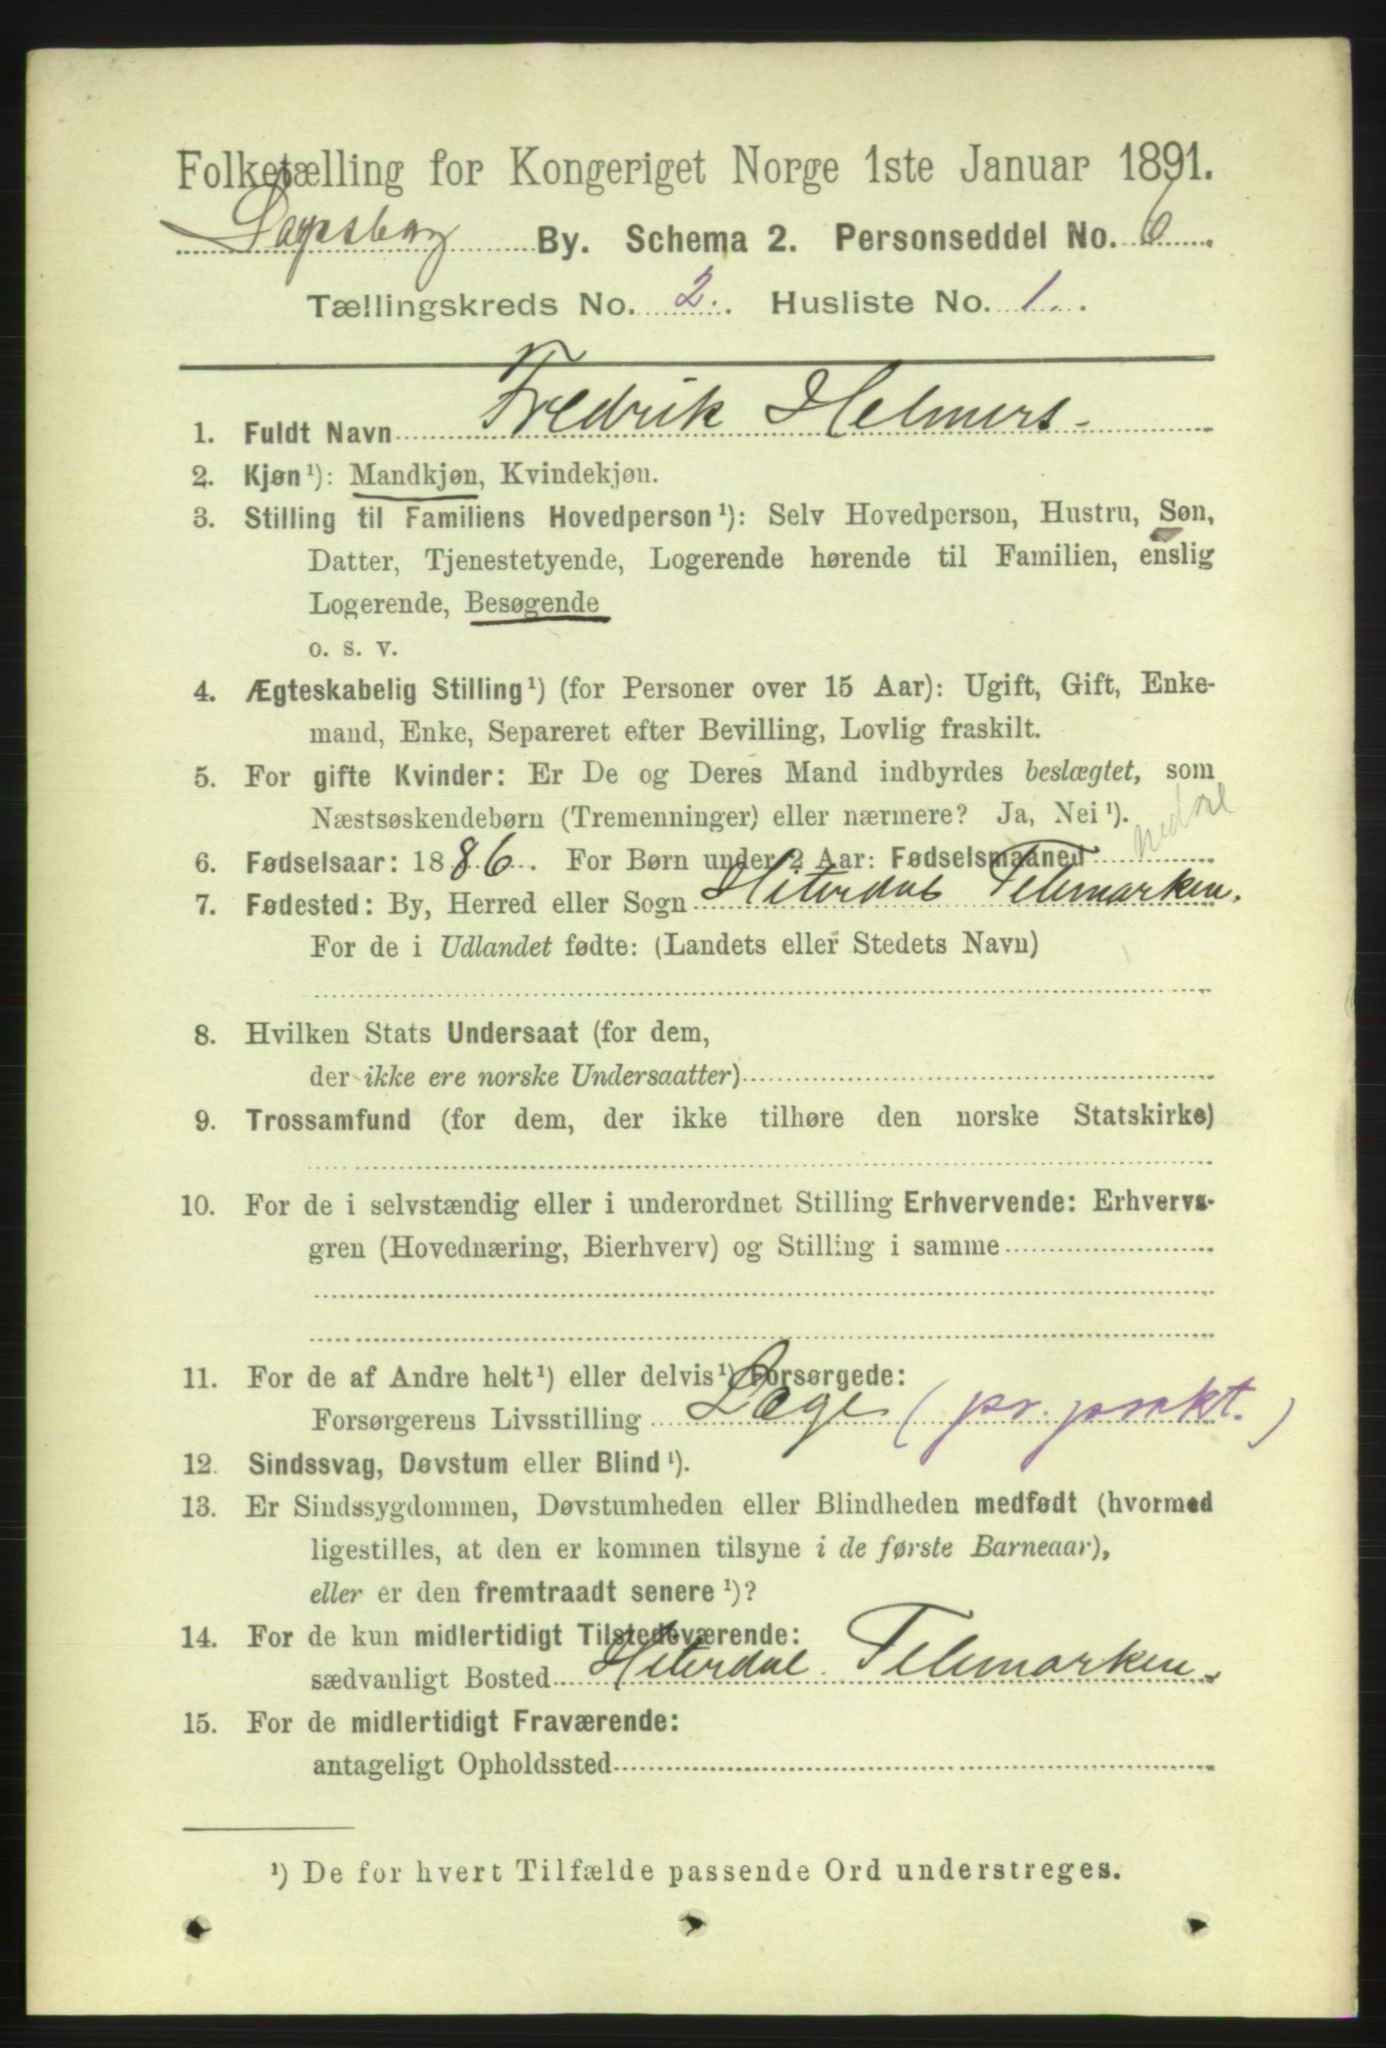 Folketælling for Kongeriget Norge 1ste Januar 1891.
Sarpsborg By. Schema 2. Personseddel No. 6
Tællingskreds No. 2. Husliste No. 1.
1. Fuldt Navn Fredrik Helmers.
2. Kjøn ¹): Mandkjøn, Kvindekjøn.
3. Stilling til Familiens Hovedperson ¹): Selv Hovedperson, Hustru, Søn,
Datter, Tjenestetyende, Logerende hørende til Familien, enslig
Logerende, Besøgende
o. s. v.
4. Ægteskabelig Stilling ¹) (for Personer over 15 Aar): Ugift, Gift, Enke-
mand, Enke, Separeret efter Bevilling, Lovlig fraskilt.
5. For gifte Kvinder: Er De og Deres Mand indbyrdes beslægtet, som
Næstsøskendebørn (Tremenninger) eller nærmere? Ja, Nei ¹).
6. Fødselsaar: 1886. For Børn under 2 Aar: Fødselsmaaned
7. Fødested: By, Herred eller Sogn Hiterdal Telemarken.
For de i Udlandet fødte: (Landets eller Stedets Navn)
8. Hvilken Stats Undersaat (for dem,
der ikke ere norske Undersaatter)
9. Trossamfund (for dem, der ikke tilhøre den norske Statskirke)
10. For de i selvstændig eller i underordnet Stilling Erhvervende: Erhvervs-
gren (Hovednæring, Bierhverv) og Stilling i samme
11. For de af Andre helt ¹) eller delvis ¹) Forsørgede:
Forsørgerens Livsstilling Læge (pr. prakt.)
12. Sindssvag, Døvstum eller Blind ¹).
13. Er Sindssygdommen, Døvstumheden eller Blindheden medfødt (hvormed
ligestilles, at den er kommen tilsyne i de første Barneaar),
eller er den fremtraadt senere ¹)?
14. For de kun midlertidigt Tilstedeværende:
sædvanligt Bosted Hiterdal. Telemarken.
15. For de midlertidigt Fraværende:
antageligt Opholdssted
¹) De for hvert Tilfælde passende Ord understreges.